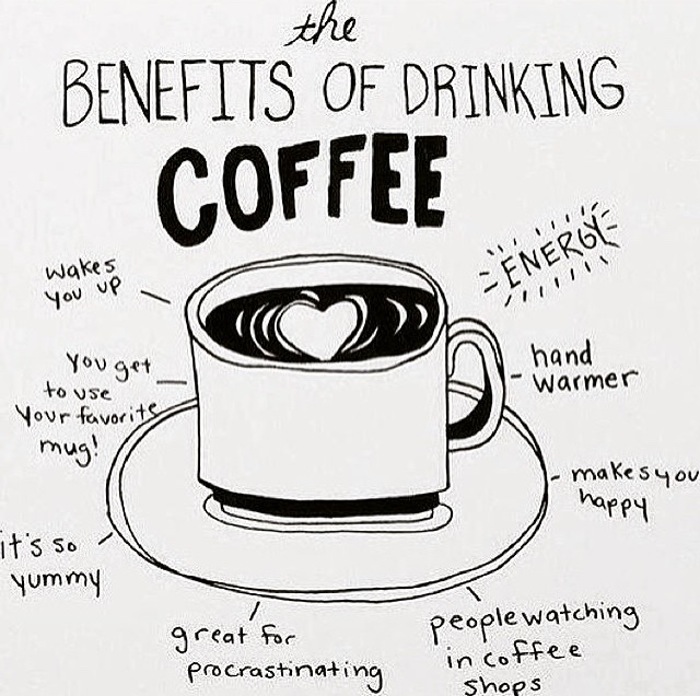 the
BENEFITS OF DRINKING
COFFEE
wakes
you up
ENERGY
You get
to use
Your favorite
mug!
hand
warmer
makes you
happy
it's so
yummy
great for
procrastinating
people watching
in coffee
shops